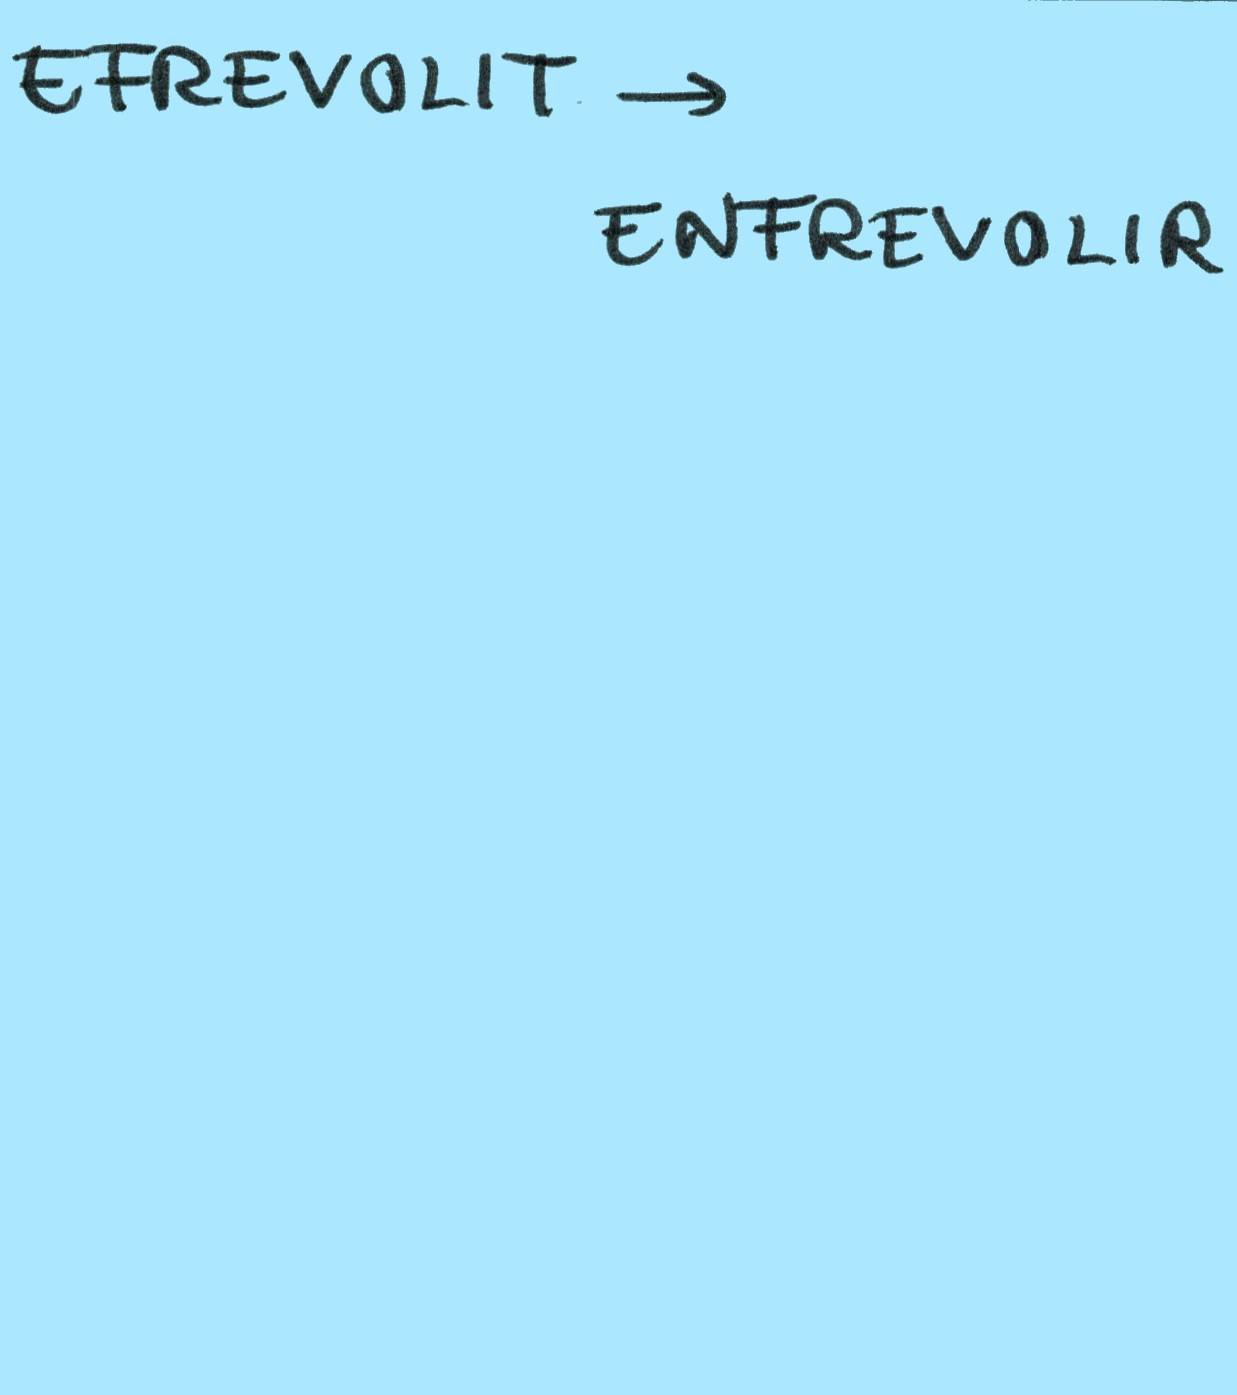 EFREVOLIT →
ENFREVOLIR